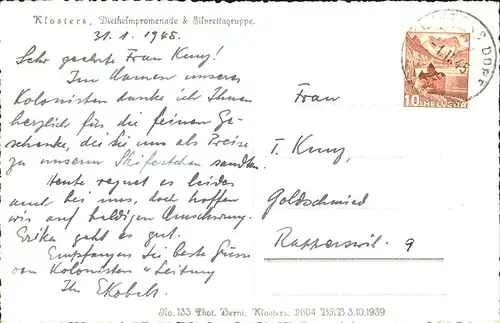 Klosters, Diethelmpromenade & Silvrettagruppe.
31. 1. 1945.
Sehr geehrte Frau Kunz!
Im Namen unseres
Kolonisten danke ich Ihnen
herzlich für die feinen Ge-
schenke, die Sie uns als Preise
zu unserm Skifestchen sandten.
Heute regnet es leider
auch bei uns, doch hoffen
wir auf baldigen Umschwung.
Erika geht es gut.
Empfangen Sie beste Grüsse
von Kolonisten & Leitung
Ihr
Frau
T. Kunz,
Goldschmied
Rapperswil
10 HELVETIA
DORF
No. 133 Phot. Berni, Klosters. 2604 BRB 3.10.1939